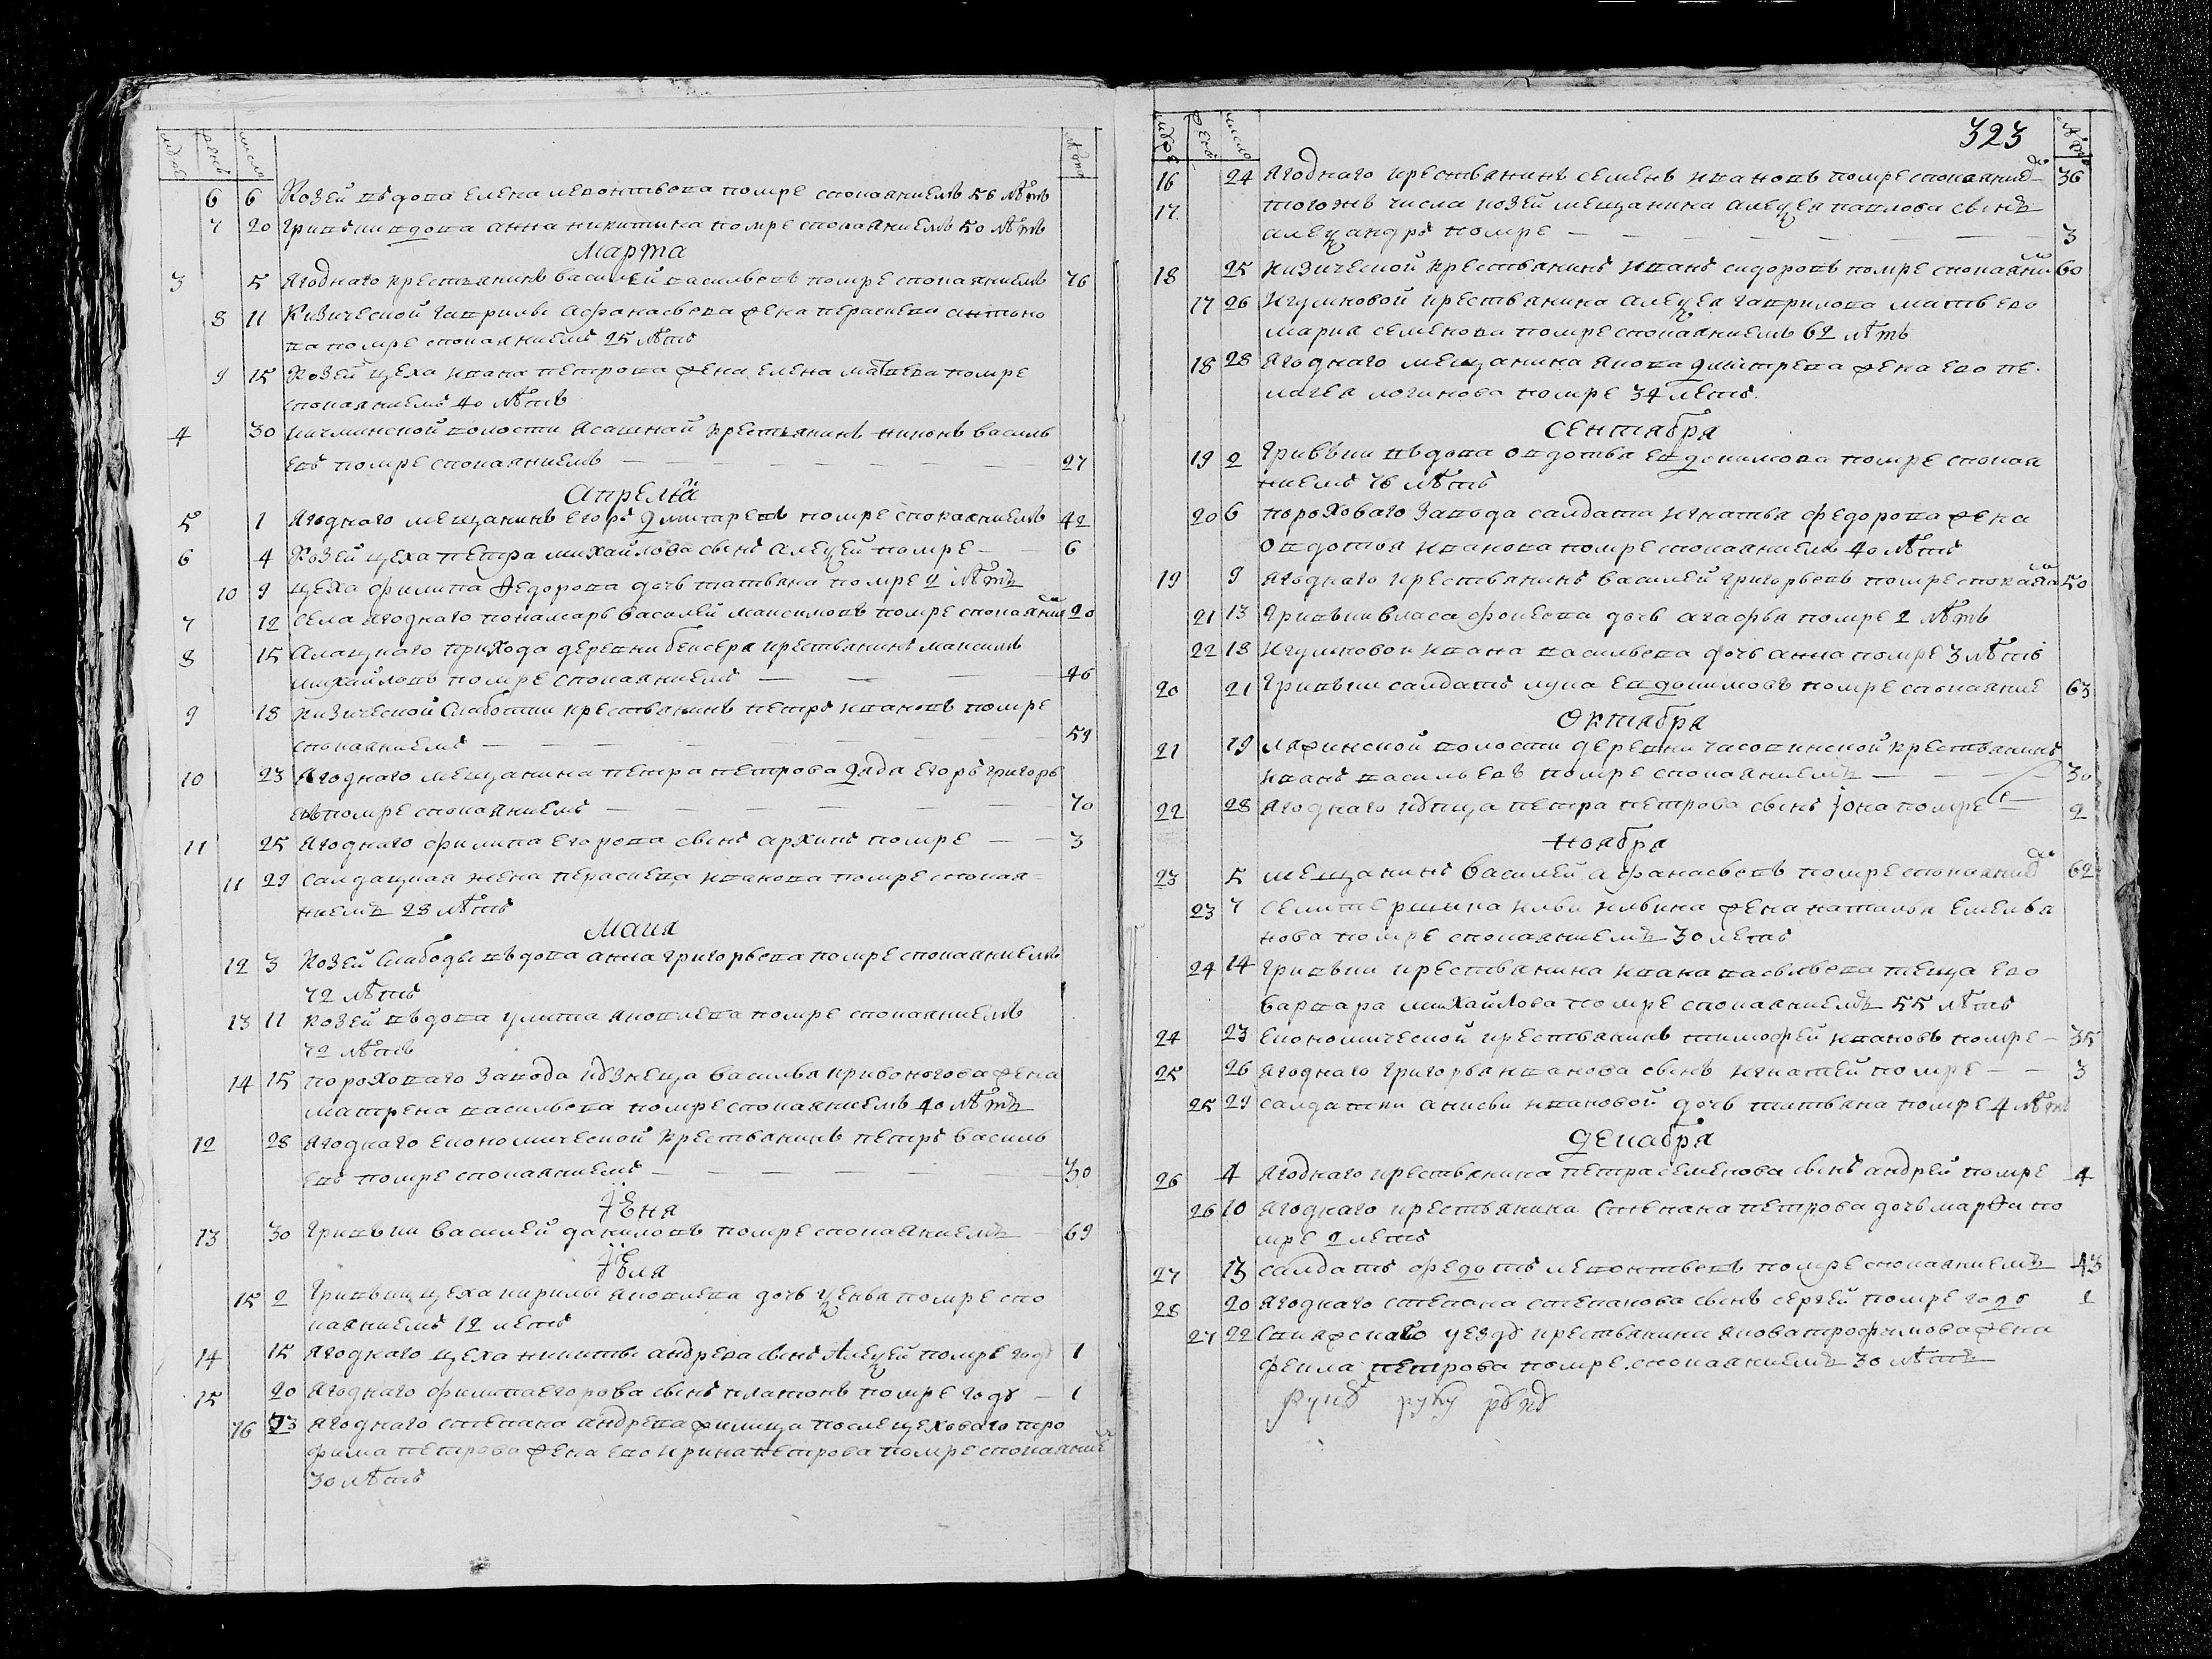 муже жене число лѣта
6 6 Козей вѣдова Елена Леонтьева помре спокаяниемъ 56 лѣтъ
7 20 Гривъни вдова анна никитина помре спокаяниемъ 50 лѣтъ
Марта
3 5 Ягоднаго крестянинъ василей васильевъ помре спокаяниемъ 76
8 11 Кизической гаврилы Афанасьева жена параскева антоно
ва помре спокаяниемъ 25 лѣтъ
9 15 Козей цеха ивана петрова жена Елена матвева помре
спокаяниемъ 40 лѣтъ
4 30 волости Ясашнай крестьянинъ никонъ василь
евъ помре спокаяниемъ — 27
Апреля
5 1 Ягоднаго мещанинъ Егоръ дмитревъ помре спокаяниемъ 42
6 4 Козей цеха петра михайлова сынъ алеѯей помре — 6
10 9 цеха филипа Федорова дочь татьяна помре 2 лѣтъ
7 12 села ягоднаго понамарь василей максимовъ помре спокаяние 20
8 15 Алацкаго прихода деревни крестьянинъ максимъ
михайловъ помре спокаяниемъ — 46
9 18 кизической Слаботы крестьянинъ петръ ивановъ помре
спокаяниемъ — 59
10 23 Ягоднаго мещанина петра петрова дядя Егоръ григорь
евъ помре спокаяниемъ — 70
11 25 Ягоднаго филипа Егорова сынъ архипъ помре — 3
11 29 салдацкая жена параскева иванова помре спокая-
ниемъ 28 лѣтъ
Маия
12 3 Козей Слабоды вѣдова анна григорьева помре спокаяниемъ
72 лѣтъ
13 11 козей вѣдова улита яковлева помре спокаяниемъ
72 лѣтъ
14 15 пороховаго завода кузнеца василья кривоногова жена
матрена васильева помре спокаяниемъ 40 лѣтъ
12 28 Ягоднаго економической крестьянинъ петръ василь
евъ помре спокаяниемъ — 30
Iюня
13 30 Гривъни василей даниловъ помре спокаяниемъ 69
Iюля
15 2 Гривъни цеха кирилы яковлева дочь ѯенья помре спо
каяниемъ 12 летъ
14 15 Ягоднаго цеха никиты андрева сынъ Алеѯей помре году 1
15 20 Ягоднаго филипа егорова сынъ платонъ помре году — 1
16 23 Ягоднаго степана андрева жилица после цеховаго тро
фима петрова жена ево ирина петрова помре спокаяние
30 лѣтъ
323
муже жене число лѣта
16 24 Ягоднаго крестьянинъ семенъ ивановъ помре спокаяние 36
17 тогожъ числа козей мещанина алеѯея павлова сынъ
алеѯандръ помре — 3
18 25 кизической крестьянинъ иванъ сидоровъ помре спокаяни 60
17 26 Игумновой крестьянина алеѯея гаврилова мать ево
мария семенова помре спокаяниемъ 62 лѣтъ
18 28 Ягоднаго мещанина якова дмитрева жена ево пе-
лагея логинова помре 34 летъ
Сентября
19 2 Гривъни вѣдова овдотья евдокимова помре спокая
ниемъ 76 лѣтъ
20 6 пороховаго завода салдата игнатья федорова жена
овдотья иванова помре спокаяниемъ 40 лѣтъ
19 9 Ягоднаго крестьянинъ василей григорьевъ помре спокаяни 50
21 13 Гривъни власа фокеева дочь агафья помре 2 лѣтъ
22 18 Игумновои ивана васильева дочь анна помре 3 лѣтъ
20 21 Гривъни салдатъ лука евдокимовъ помре спокаяние 63
Октября
21 19 волости деревни крестьянинъ
иванъ васильевъ помре спокаяниемъ — 30
22 28 Ягоднаго купца петра петрова сынъ Iона помре — 2
Ноября
23 5 мещанинъ василей афанасьевъ помре спокаяние 62
23 7 ильи ильина жена наталья емелья
нова помре спокаяниемъ 30 летъ
24 14 Гривъни крестьянина ивана васильева теща ево
варвара михайлова помре спокаяниемъ 55 лѣтъ
24 23 Економической крестьянинъ тимофей ивановъ помре — 35
25 26 Ягоднаго григорья иванова сынъ игнатей помре — 3
25 29 салдатки анисьи ивановой дочь татьяна помре 4 лѣтъ
Декабря
26 4 Ягоднаго крестьянина петра семенова сынъ андрей помре 4
26 10 Ягоднаго крестьянина Степана петрова дочь марѳа по
мре 2 летъ
27 13 салдатъ федотъ леонтьевъ помре спокаяниемъ 43
28 20 Ягоднаго степана степанова сынъ сергей помре году 1
27 22 Свияжскаго уезду крестьянина якова трофимова жена
Фекла петрова помре спокаяниемъ 30 лѣтъ